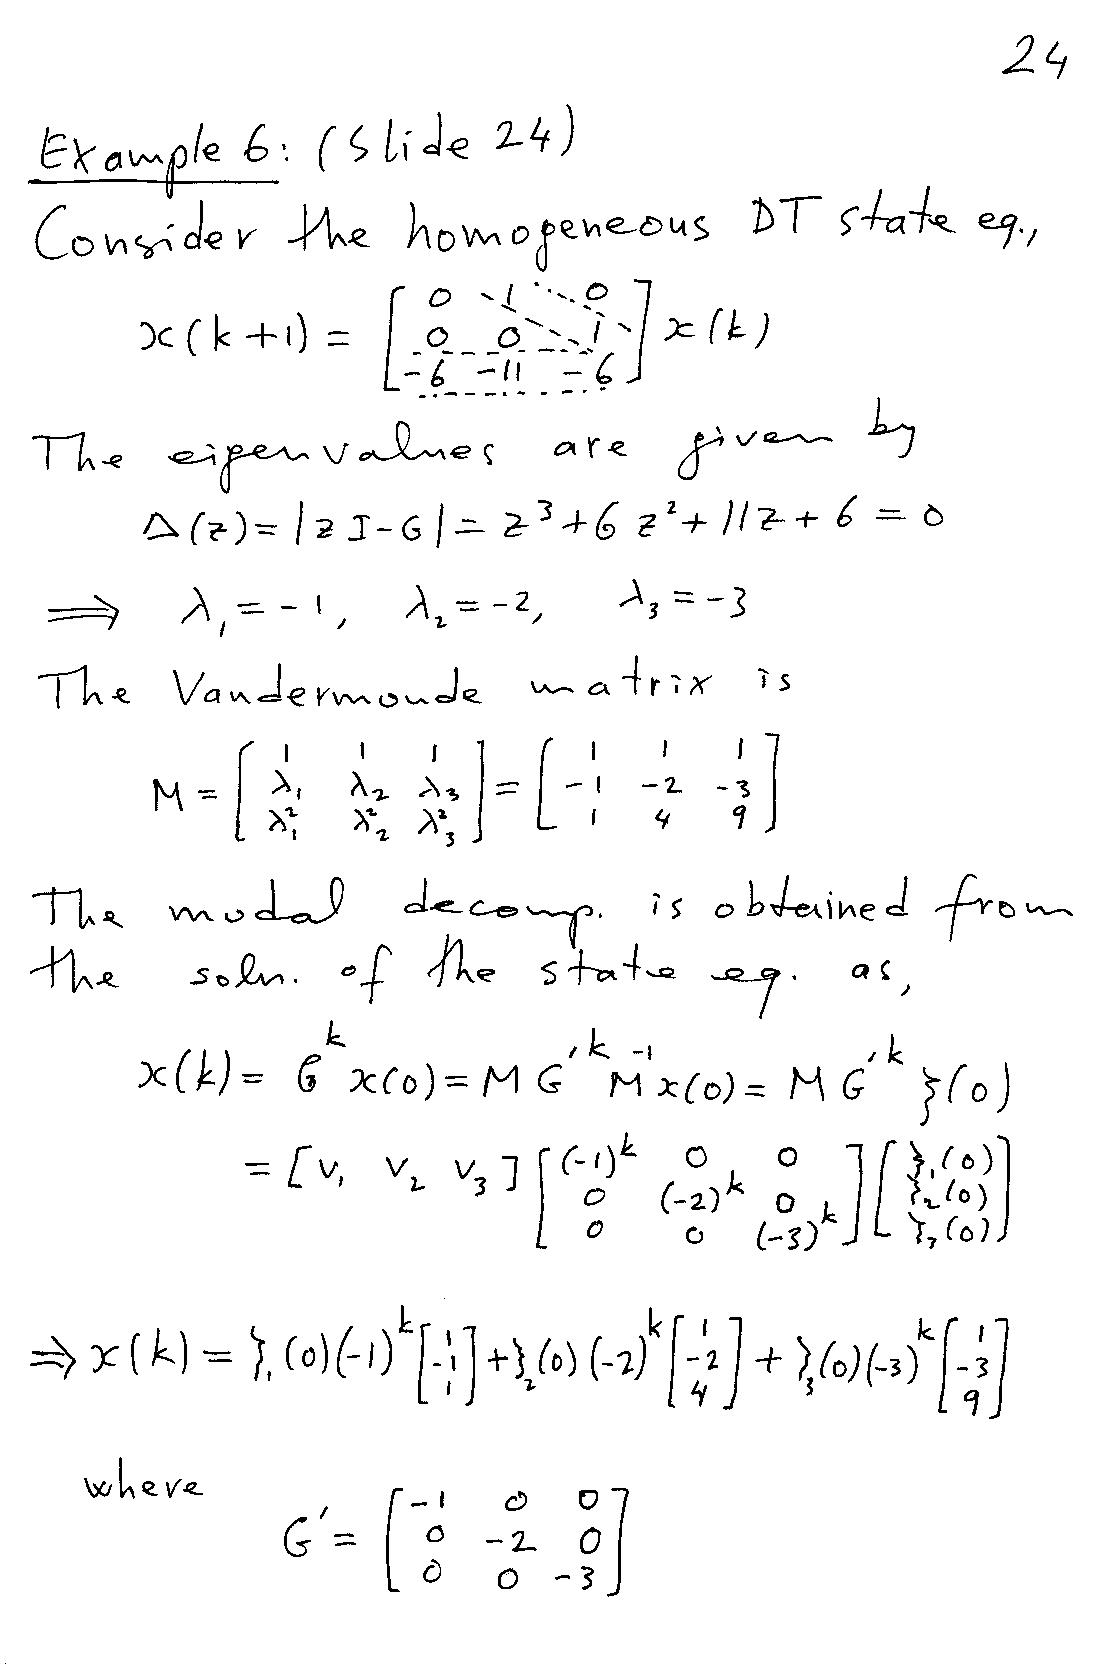 24
Example 6: (Slide 24)
Consider the homogeneous DT state eq.,
x(k+1) = [0 1 0; 0 0 1; -6 -11 -6] x(k)
The eigenvalues are given by
Δ(z) = |zI-G| = z³+6z²+11z+6 = 0
⟹ λ₁=-1, λ₂=-2, λ₃=-3
The Vandermonde matrix is
M = [1 1 1; λ₁ λ₂ λ₃; λ₁² λ₂² λ₃²] = [1 1 1; -1 -2 -3; 1 4 9]
The modal decomp. is obtained from
the soln. of the state eq. as,
x(k) = G^k x(0) = M G'^k M⁻¹ x(0) = M G'^k ξ(0)
= [v₁ v₂ v₃] [(-1)^k 0 0; 0 (-2)^k 0; 0 0 (-3)^k] [ξ₁(0); ξ₂(0); ξ₃(0)]
⇒ x(k) = ξ₁(0)(-1)^k [1; -1; 1] + ξ₂(0)(-2)^k [1; -2; 4] + ξ₃(0)(-3)^k [1; -3; 9]
where
G' = [-1 0 0; 0 -2 0; 0 0 -3]